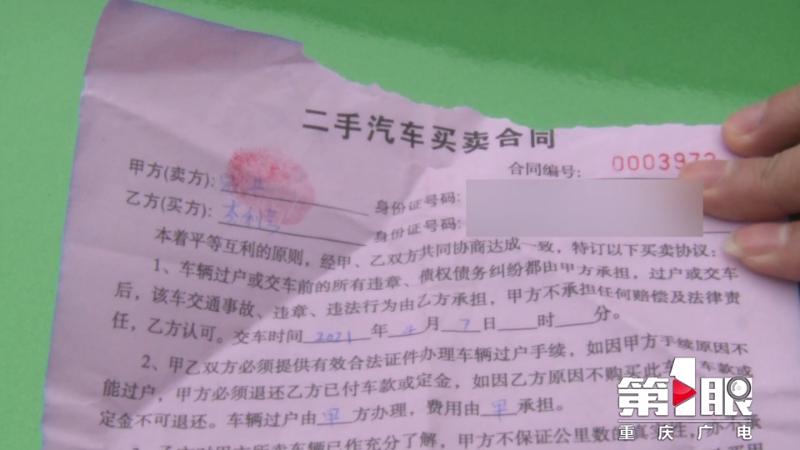 二手汽车买卖合同
合同编号: 0003973
甲方(卖方): 身份证号码:
乙方(买方): 身份证号码:
本着平等互利的原则，经甲、乙双方共同协商达成一致，特订以下买卖协议：
1、车辆过户或交车前的所有违章、债权债务纠纷都由甲方承担，过户或交车
后，该车交通事故、违章、违法行为由乙方承担，甲方不承担任何赔偿及法律责
任，乙方认可。交车时间2021年4月7日 时 分。
2、甲乙双方必须提供有效合法证件办理车辆过户手续，如因甲方手续原因不
能过户，甲方必须退还乙方已付车款或定金，如因乙方原因不购买此 车款或
定金不可退还。车辆过户由甲方办理，费用由甲承担。
已作充分了解，甲方不保证公里数的真实性，亦不承
第1眼
重庆广电